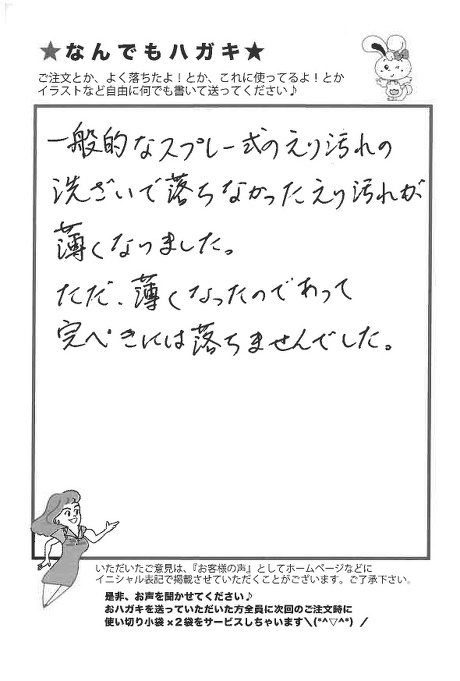 ★なんでもハガキ★
ご注文とか、よく落ちたよ！とか、これに使ってるよ！とか
イラストなど自由に何でも書いて送ってください♪
一般的なスプレー式のえり汚れの
洗ざいで落ちなかったえり汚れが
薄くなりました。
ただ、薄くなったのであって
完ぺきには落ちませんでした。
いただいたご意見は、『お客様の声』としてホームページなどに
イニシャル表記で掲載させていただくことがございます。ご了承下さい。
是非、お声を聞かせてください♪
おハガキを送っていただいた方全員に次回のご注文時に
使い切り小袋×2袋をサービスしちゃいます＼(*^▽^*) ／